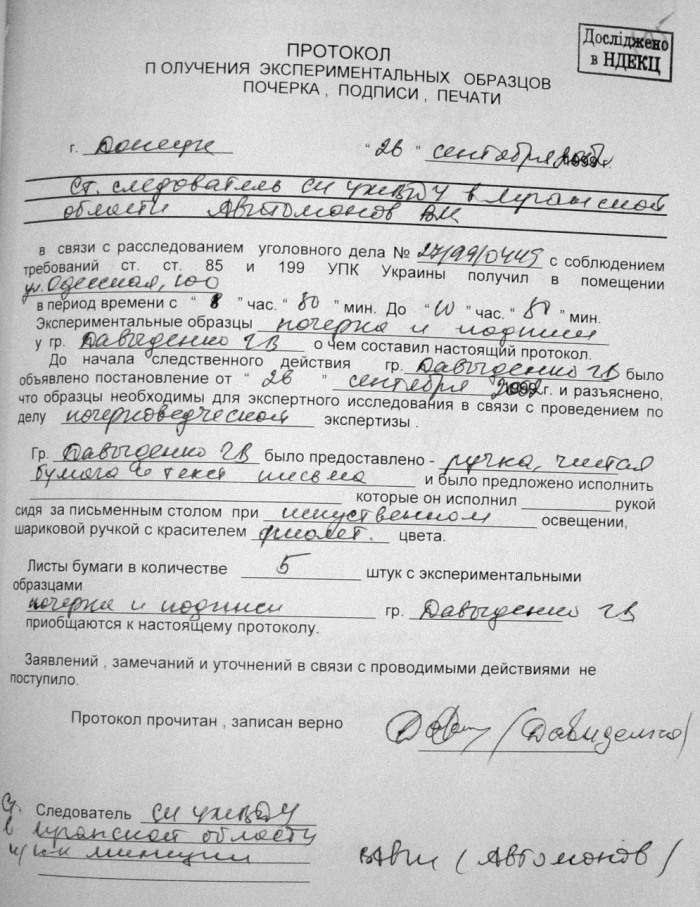 Досліджено
в НДЕКЦ
ПРОТОКОЛ
П ОЛУЧЕНИЯ ЭКСПЕРИМЕНТАЛЬНЫХ ОБРАЗЦОВ
ПОЧЕРКА , ПОДПИСИ , ПЕЧАТИ
г. Донецк " 26 " сентября г.
Ст. следователь СИ УМВДУ в Луганской
области Автомонов ВМ
в связи с расследованием уголовного дела № 27/99/0449 с соблюдением
требований ст. ст. 85 и 199 УПК Украины получил в помещении
ул. Одесская, 100
в период времени с " 8 " час. " 50 " мин. До " 10 " час. " 50 " мин.
Экспериментальные образцы почерка и подписи
у гр. Давыденко ГВ о чем составил настоящий протокол.
До начала следственного действия гр. Давыденко ГВ было
объявлено постановление от " 26 " сентября г. и разъяснено,
что образцы необходимы для экспертного исследования в связи с проведением по
делу почерковедческой экспертизы .
Гр. Давыденко ГВ было предоставлено - ручка, чистая
бумага и текст письма и было предложено исполнить
которые он исполнил рукой
сидя за письменным столом при искуственном освещении,
шариковой ручкой с красителем фиолет. цвета.
Листы бумаги в количестве 5 штук с экспериментальными
образцами
почерка и подписи гр. Давыденко ГВ
приобщаются к настоящему протоколу.
Заявлений , замечаний и уточнений в связи с проводимыми действиями не
поступило.
Протокол прочитан , записан верно (Давиденко)
Ст. Следователь СИ УМВДУ
в Луганской области
милиции (Автомонов)